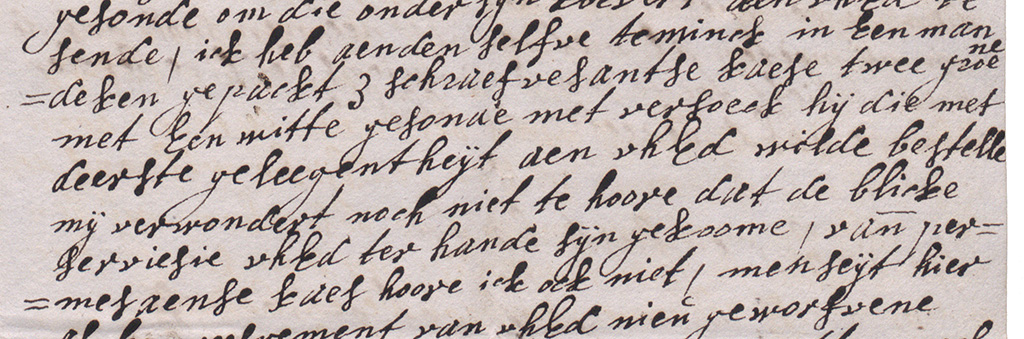 gesonde om die onder syn
sende, ick heb aenden selfve teminck in Een man
=deken gepackt 3 schraefvesantse kaese twee groene
met Een witte gesonde met versoeck hij die met
deerste geleegentheijt aen vhEd wilde bestelle
mij verwondert noch niet te hoore dat de blicke
serviesie vhEd ter hande sijn gekoome, van per=
=mesaense kaes hoore ick ock niet, men seijt hier
van vhEd nieu geworfvene